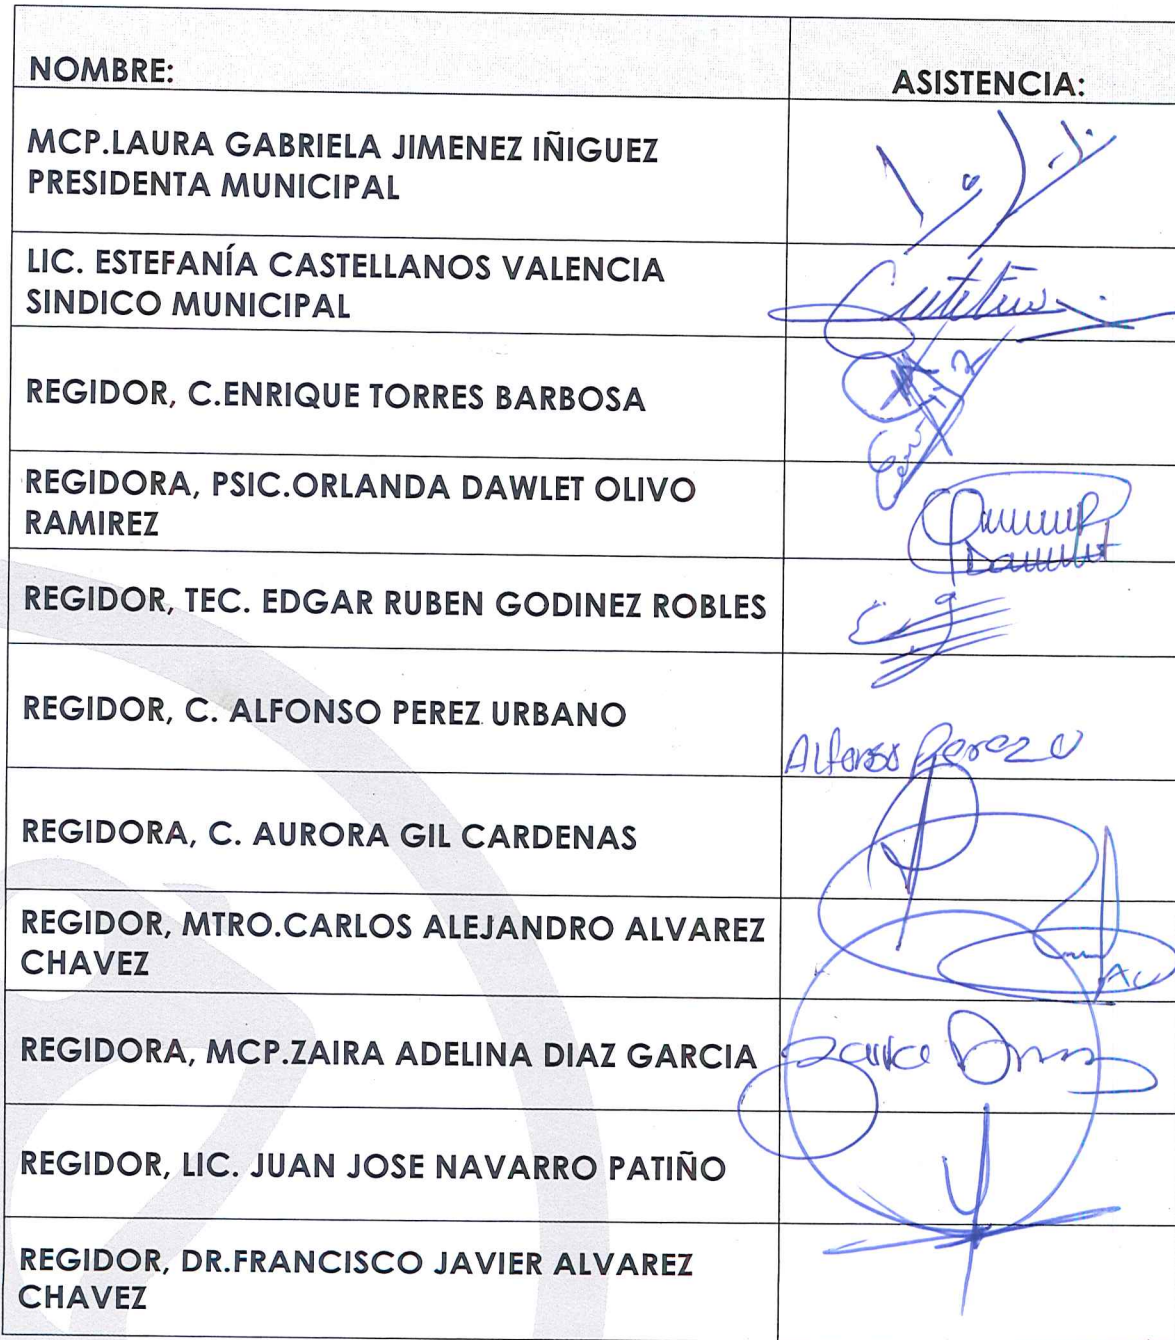 NOMBRE:
ASISTENCIA:
MCP.LAURA GABRIELA JIMENEZ IÑIGUEZ
PRESIDENTA MUNICIPAL
LIC. ESTEFANÍA CASTELLANOS VALENCIA
SINDICO MUNICIPAL
REGIDOR, C.ENRIQUE TORRES BARBOSA
REGIDORA, PSIC.ORLANDA DAWLET OLIVO
RAMIREZ
REGIDOR, TEC. EDGAR RUBEN GODINEZ ROBLES
REGIDOR, C. ALFONSO PEREZ URBANO
Alfonso Perez U
REGIDORA, C. AURORA GIL CARDENAS
REGIDOR, MTRO.CARLOS ALEJANDRO ALVAREZ
CHAVEZ
REGIDORA, MCP.ZAIRA ADELINA DIAZ GARCIA
REGIDOR, LIC. JUAN JOSE NAVARRO PATIÑO
REGIDOR, DR.FRANCISCO JAVIER ALVAREZ
CHAVEZ